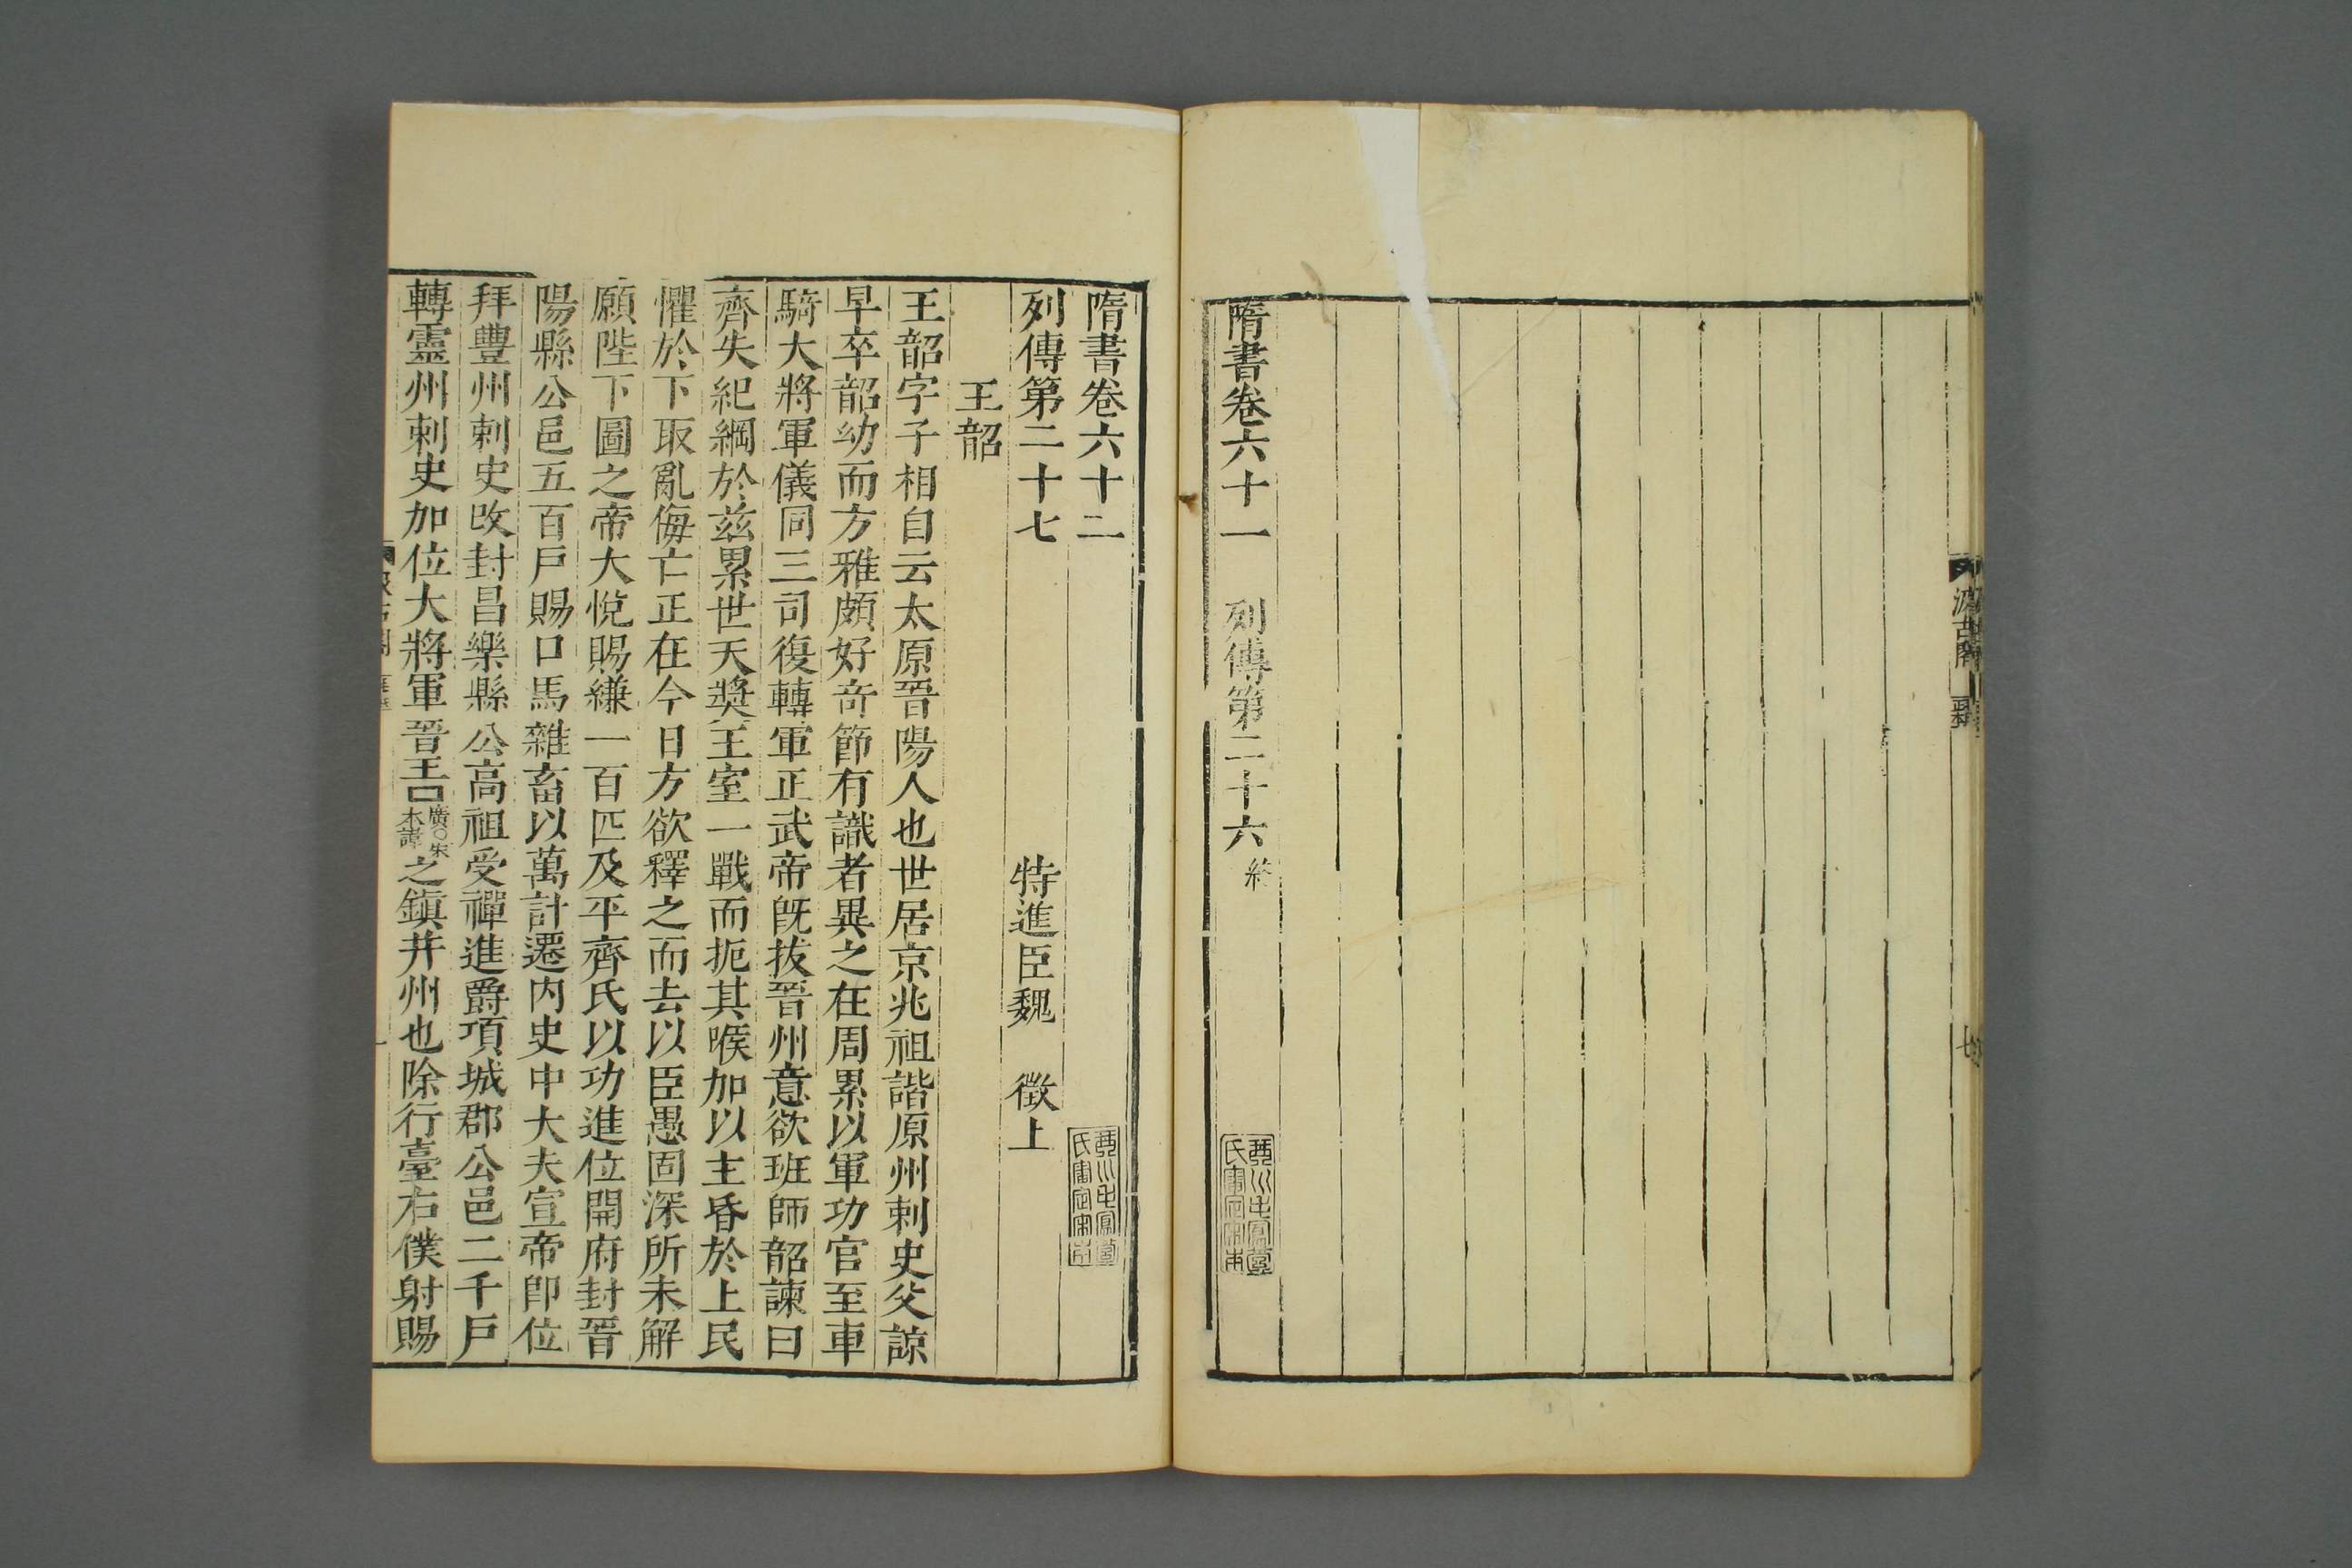 隋書卷六十一　列傳第二十六終
隋書卷六十二
列傳第二十七　特進臣魏　徵上
王韶
王韶字子相自云太原晉陽人也世居京兆祖諧原州刺史父諒
早卒韶幼而方雅頗好竒節有識者異之在周累以軍功官至車
騎大將軍儀同三司復轉軍正武帝旣拔晉州意欲班師韶諫曰
齊失紀綱於兹累世天奬王室一戰而扼其喉加以主昏於上民
懼於下取亂侮亡正在今日方欲釋之而去以臣愚固深所未解
願陛下圖之帝大悅賜縑一百匹及平齊氏以功進位開府封晉
陽縣公邑五百戸賜口馬雜畜以萬計遷内史中大夫宣帝卽位
拜豐州刺史改封昌樂縣公高祖受禪進爵項城郡公邑二千戸
轉靈州刺史加位大將軍晉王口廣○宋本諱之鎮幷州也除行臺右僕射賜